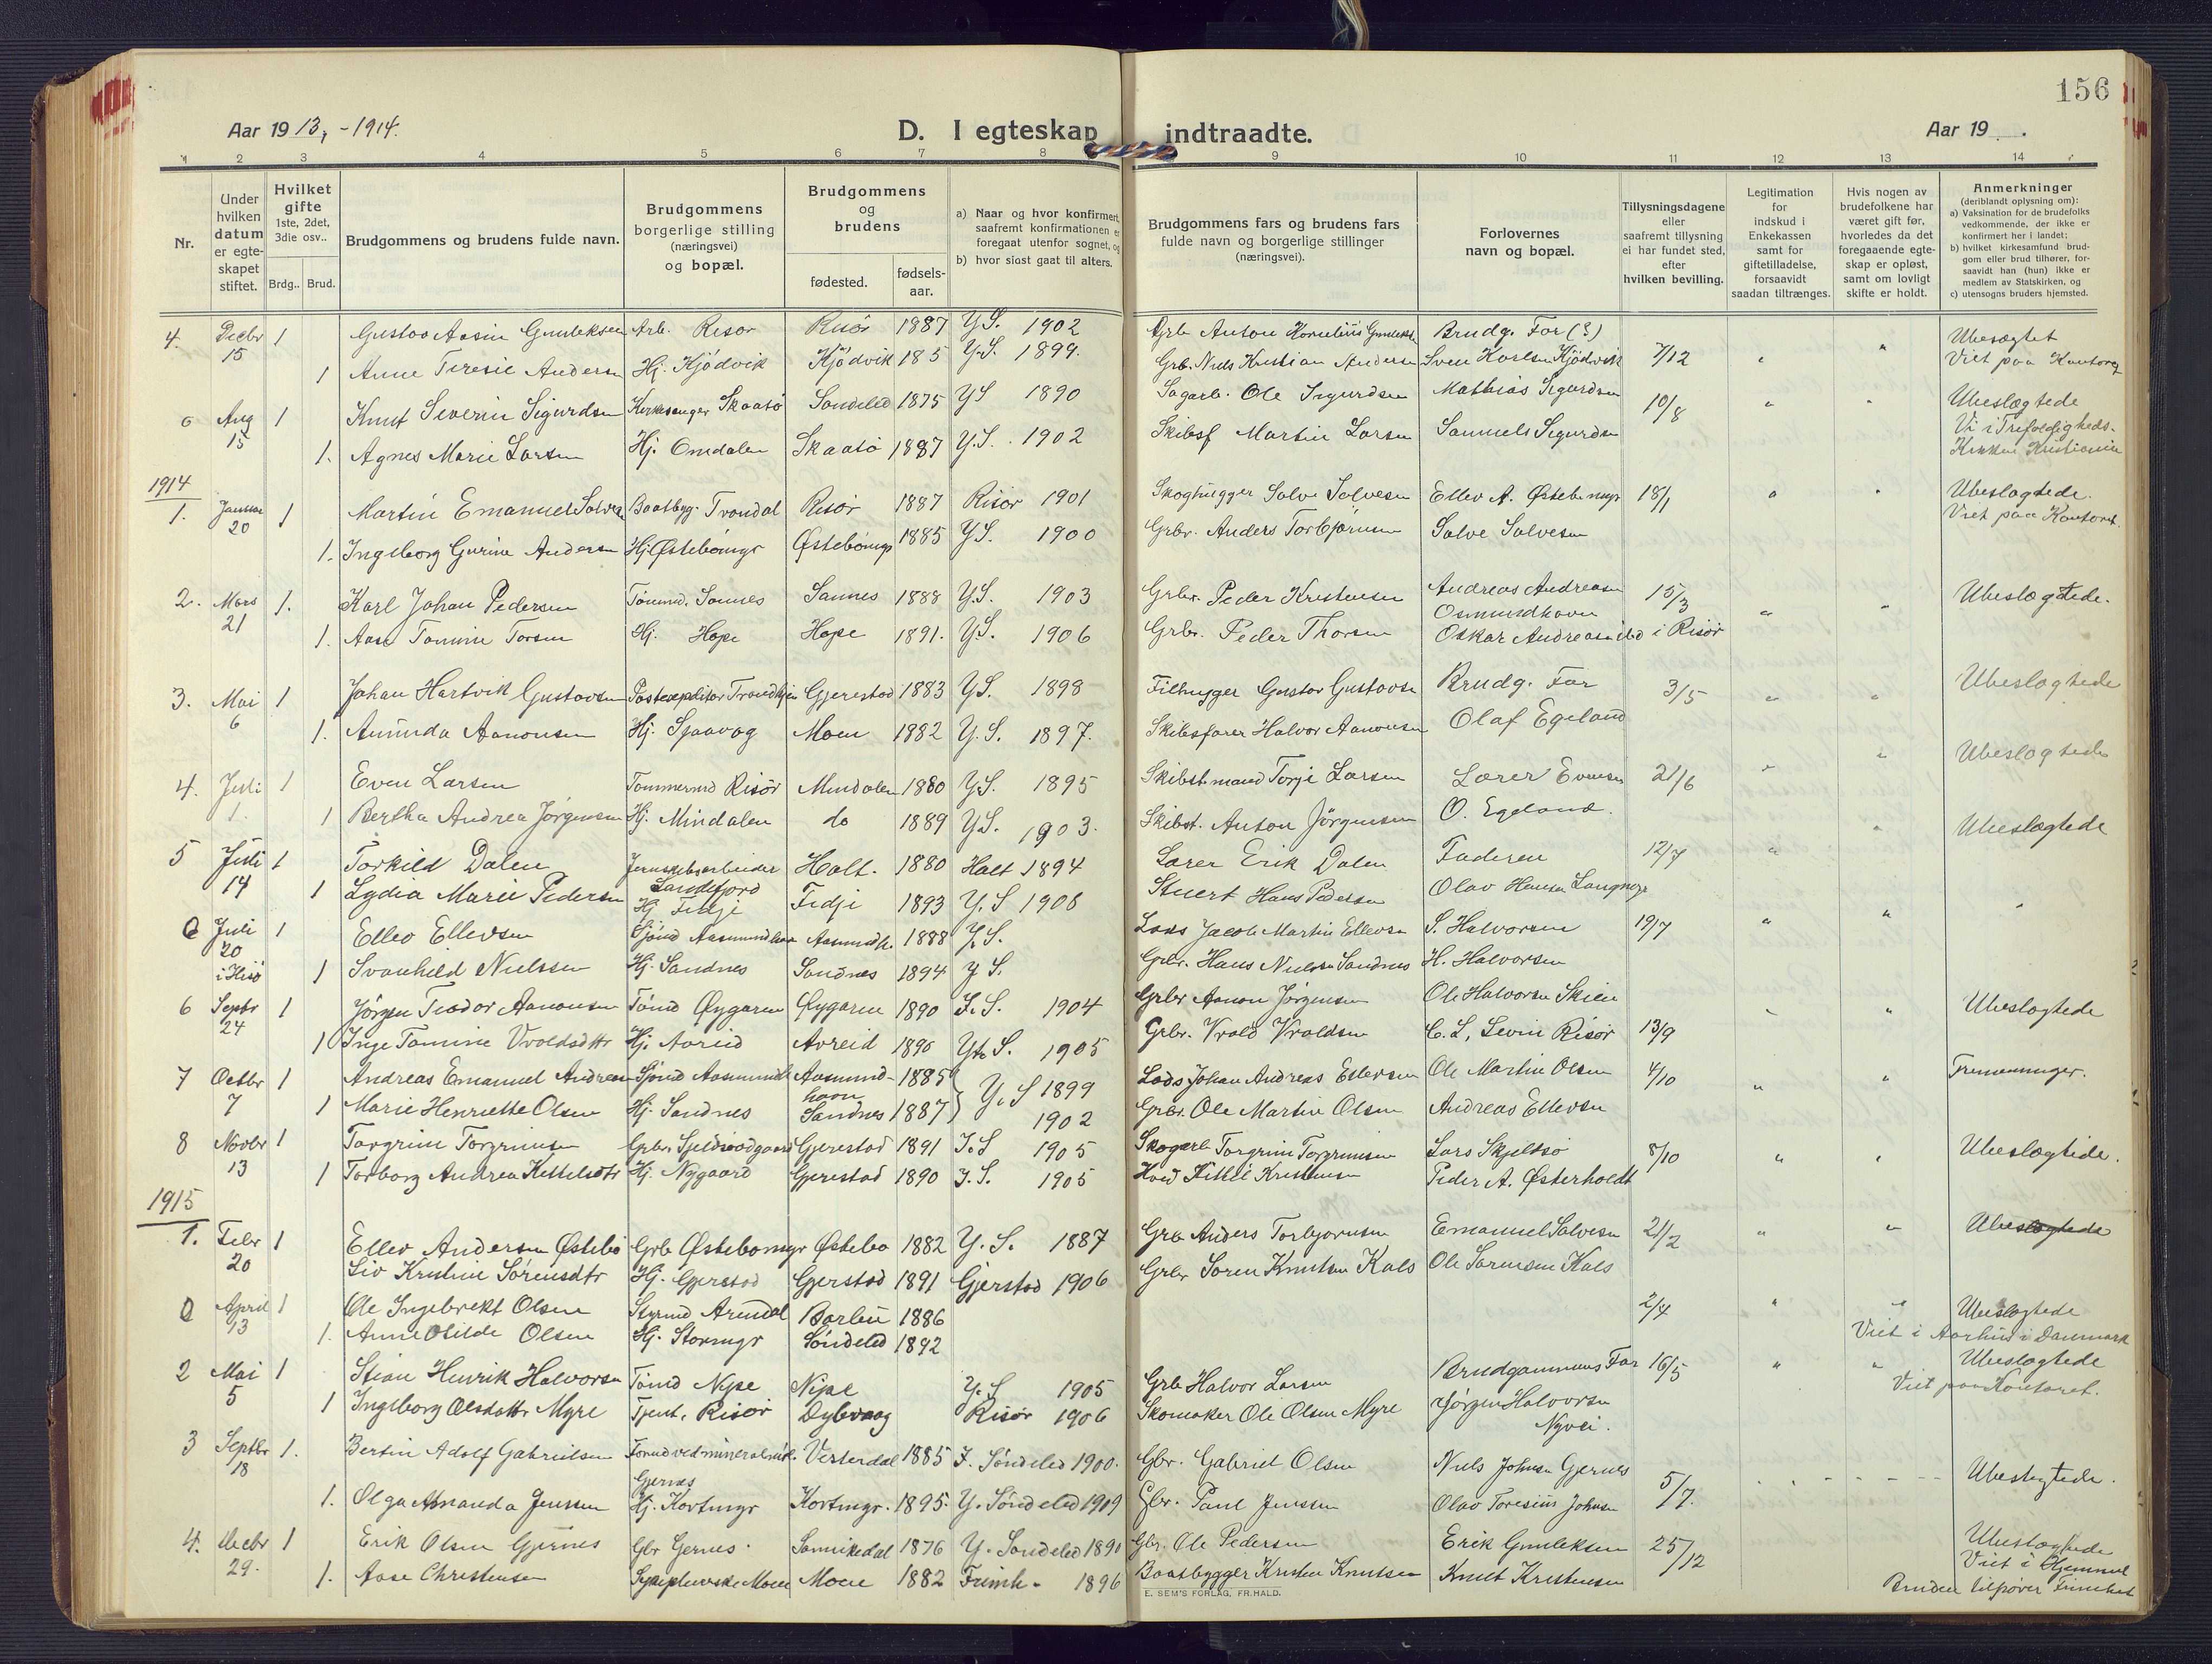 156
Aar 1913, -1914.
D. I egteskap indtraadte.
Aar 19 .
1 2 3 4 5 6 7 8 9 10 11 12 13 14
Nr.
Under hvilken datum er egteskapet stiftet.
Hvilket gifte 1ste, 2det, 3die osv..
Brdg.. Brud.
Brudgommens og brudens fulde navn.
Brudgommens borgerlige stilling (næringsvei) og bopæl.
Brudgommens og brudens
fødested. fødsels-aar.
a) Naar og hvor konfirmert, saafremt konfirmationen er foregaat utenfor sognet, og
b) hvor sidst gaat til alters.
Brudgommens fars og brudens fars fulde navn og borgerlige stillinger (næringsvei).
Forlovernes navn og bopæl.
Tillysningsdagene eller saafremt tillysning ei har fundet sted, efter hvilken bevilling.
Legitimation for indskud i Enkekassen samt for giftetilladelse, forsaavidt saadan tiltrænges.
Hvis nogen av brudefolkene har været gift før, hvorledes da det foregaaende egteskap er opløst, samt om lovligt skifte er holdt.
Anmerkninger (deriblandt oplysning om):
a) Vaksination for de brudefolks vedkommende, der ikke er konfirmert her i landet;
b) hvilket kirkesamfund brudgom eller brud tilhører, forsaavidt han (hun) ikke er medlem av Statskirken, og
c) utensogns bruders hjemsted.
4. Decbr 15 1 Gustav Aasin Gunleksen Arb. Risør Risør 1887 Y.S. 1902 Grb Anton Kornelius Gunleks. Brudg. Far (?) 7/12 Ubesægtet
1 Anne Teresie Andersen Hj. Kjødvik Kjødvik 185 Y.S. 1899. Grb. Niels Kristian Andersen Sven Karlsen Kjødvik Viet paa Kontoret
0 Aug 15 1 Knut Severin Sigurdsen Kirkesanger Skaatø Søndeled 1875 YS 1890 Sagarb. Ole Sigurdsen Mathias Sigurdsen 10/8 Ubeslægtede
1. Agnes Marie Larsen Hj. Omdalen Skaatø 1887 Y.S. 1902 Skibsf Martin Larsen Samuel Sigurdsen Vi i Trefoldigheds-
Kirken Kristiania
1914
1. Januar 20 1 Martin Emanuel Salvesen Baatbyg. Trondal Risør 1887 Risør 1901 Skoghugger Salve Salvesen Ellev A. Østebømyr 18/1 Ubeslægtede.
Viet paa Kontoret.
1. Ingeborg Gurine Andersen Hj. Østebømyr Østebømyr 1885 Y.S. 1900 Grbr. Anders Torbjørnsen Salve Salvesen
2. Mars 21 1. Karl Johan Pedersen Tømmd. Sannes Sannes 1888 Y.S. 1903 Grbr. Peder Kristensen Andreas Andreasen Osmundhavn 15/3 Ubeslægtede.
1. Aase Tomine Torsen Hj. Hope Hope 1891. Y.S. 1906 Grbr. Peder Thorsen Oskar Andreasen ibd i Risør
3. Mai 6 1 Johan Hartvik Gustavsen Postexpeditør Trondhjem Gjerestad 1883 Y.S. 1898 Filhugger Gustav Gustavsen Brudg. Far 3/5 Ubeslægtede
1. Amunda Aanonsen Hj. Sjaavag Moen 1882 Y.S. 1897. Skibsfører Halvor Aanonsen Olaf Egeland
4. Juli 1. 1 Even Larsen Tømmermd Risør Mindalen 1880 Y.S. 1895 Skibst.mand Torje Larsen Lærer Evensen 21/6 Ubeslægtede
1 Bertha Andrea Jørgensen Hj. Mindalen do 1889 Y.S. 1903. Skibst. Anton Jørgensen O. Egeland.
5 Juli 14 1 Torkild Dalen Jernskibsarbeider Sandefjord Holt. 1880 Holt 1894 Lærer Erik Dalen Faderen 12/7 Ubeslægtede
1 Lydia Marie Pedersen Hj Fidje Fidje 1893 Y.S 1908 Stuert Hans Pedersen Olav Hansen Langmyr
0 Juli 20 i Hisø 1 Ellev Ellevsen Sjømd Aasmundhavn Aasmundh. 1888 Y.S. Lods Jacob Martin Ellevsen S. Halvorsen 19/7
1 Svanhild Nielssen Hj. Sandnes Sandnes 1894 Y S. Grbr. Hans Nielsen Sandnes H. Halvorsen
6 Septbr 24 1 Jørgen Teodor Aanonsen Tømd Øygaren Øygaren 1890 I.S. 1904 Grbr Aanon Jørgensen Ole Halvorsen Skien 13/9 Ubeslægtede
1 Inga Tomine Vroldsdttr Hj. Avreid Avreid 1890 Ytr S. 1905 Grbr. Vrold Vroldsen C. L. Levin Risør
7 Octbr 7 1 Andreas Emanuel Andreasen Sjømd Aasmundh. Aasmund-havn 1885 Y.S 1899 Lods Johan Andreas Ellevsen Ole Martin Olsen 4/10 Tremenninger.
1 Marie Henriette Olsen Hj. Sandnes Sandnes 1887 1902 Grbr. Ole Martin Olsen Andreas Ellevsen
8 Novbr 13 1 Torgrim Torgrimsen Gjerestad 1891 I.S 1905 Skogarb Torgrim Torgrimsen Lars Skjeldsø 8/10 Ubeslægtede.
1 Torborg Andrea Kittelsdtr Hj. Nygaard Gjerestad 1890 I.S. 1905 Kittil Kristensen Peder A. Østerholdt
1915
1. Febr 20 1 Ellev Andersen Østebø Grb Østebømyr Østebø 1882 Y.S. 1887 Grb Anders Torbjørnsen Emanuel Salvesen 21/2 Ubeslægtede
Liv Kristine Sørensdtr Hj. Gjerstad Gjerstad 1891 Gjerstad 1906 Grbr Søren Knutsen Kals Ole Sørensen Kals
0 April 13 1 Ole Ingebrekt Olsen Styrmd Arendal Barbu 1886 2/4 Ubeslægtede
1. Anne Otilde Olsen Hj. Stormyr Søndeled 1892 Viet i Aarhus i Danmark
2 Mai 5 1 Stian Henrik Halvorsen Tømd Nipe Nipe Y.S 1905 Grb Halvor Larsen Brudgommens Far 16/5 Ubeslægtede
Viet paa Kontoret.
1 Ingeborg Olsdattr Myre Tjent. Risør Dybvaag Risør 1906 Skomaker Ole Olsen Myre Jørgen Halvorsen Nyvei.
3 Septbr 18 1. Bertin Adolf Gabrielsen Gjernes Vesterdal 1885 I. Søndeled 1900. Gbr. Gabriel Olsen Niels Johnsen Gjernes 5/7. Ubeslegtede.
1. Olga Amanda Jenssen Hj. Kortmyr Kortmyr. 1895. Y. Søndeled 1909 Gbr. Paul Jenssen Olav Toresius Johnsen
4. Decbr 29. 1 Erik Olsen Gjernes Gbr Gernes. Sannikedal 1876 Y. Søndeled 1890 Gbr. Ole Pedersen Erik Gunleksen 25/12 Ubeslægtede
Viet i Hjemmet
1. Aase Christensen Sykepleierske Moen Moen 1882 Frimh. 1896 Baatbygger Kristen Knutsen Knut Kristensen Bruden tilhører Frimhet
E. SEM'S FORLAG, FR.HALD.